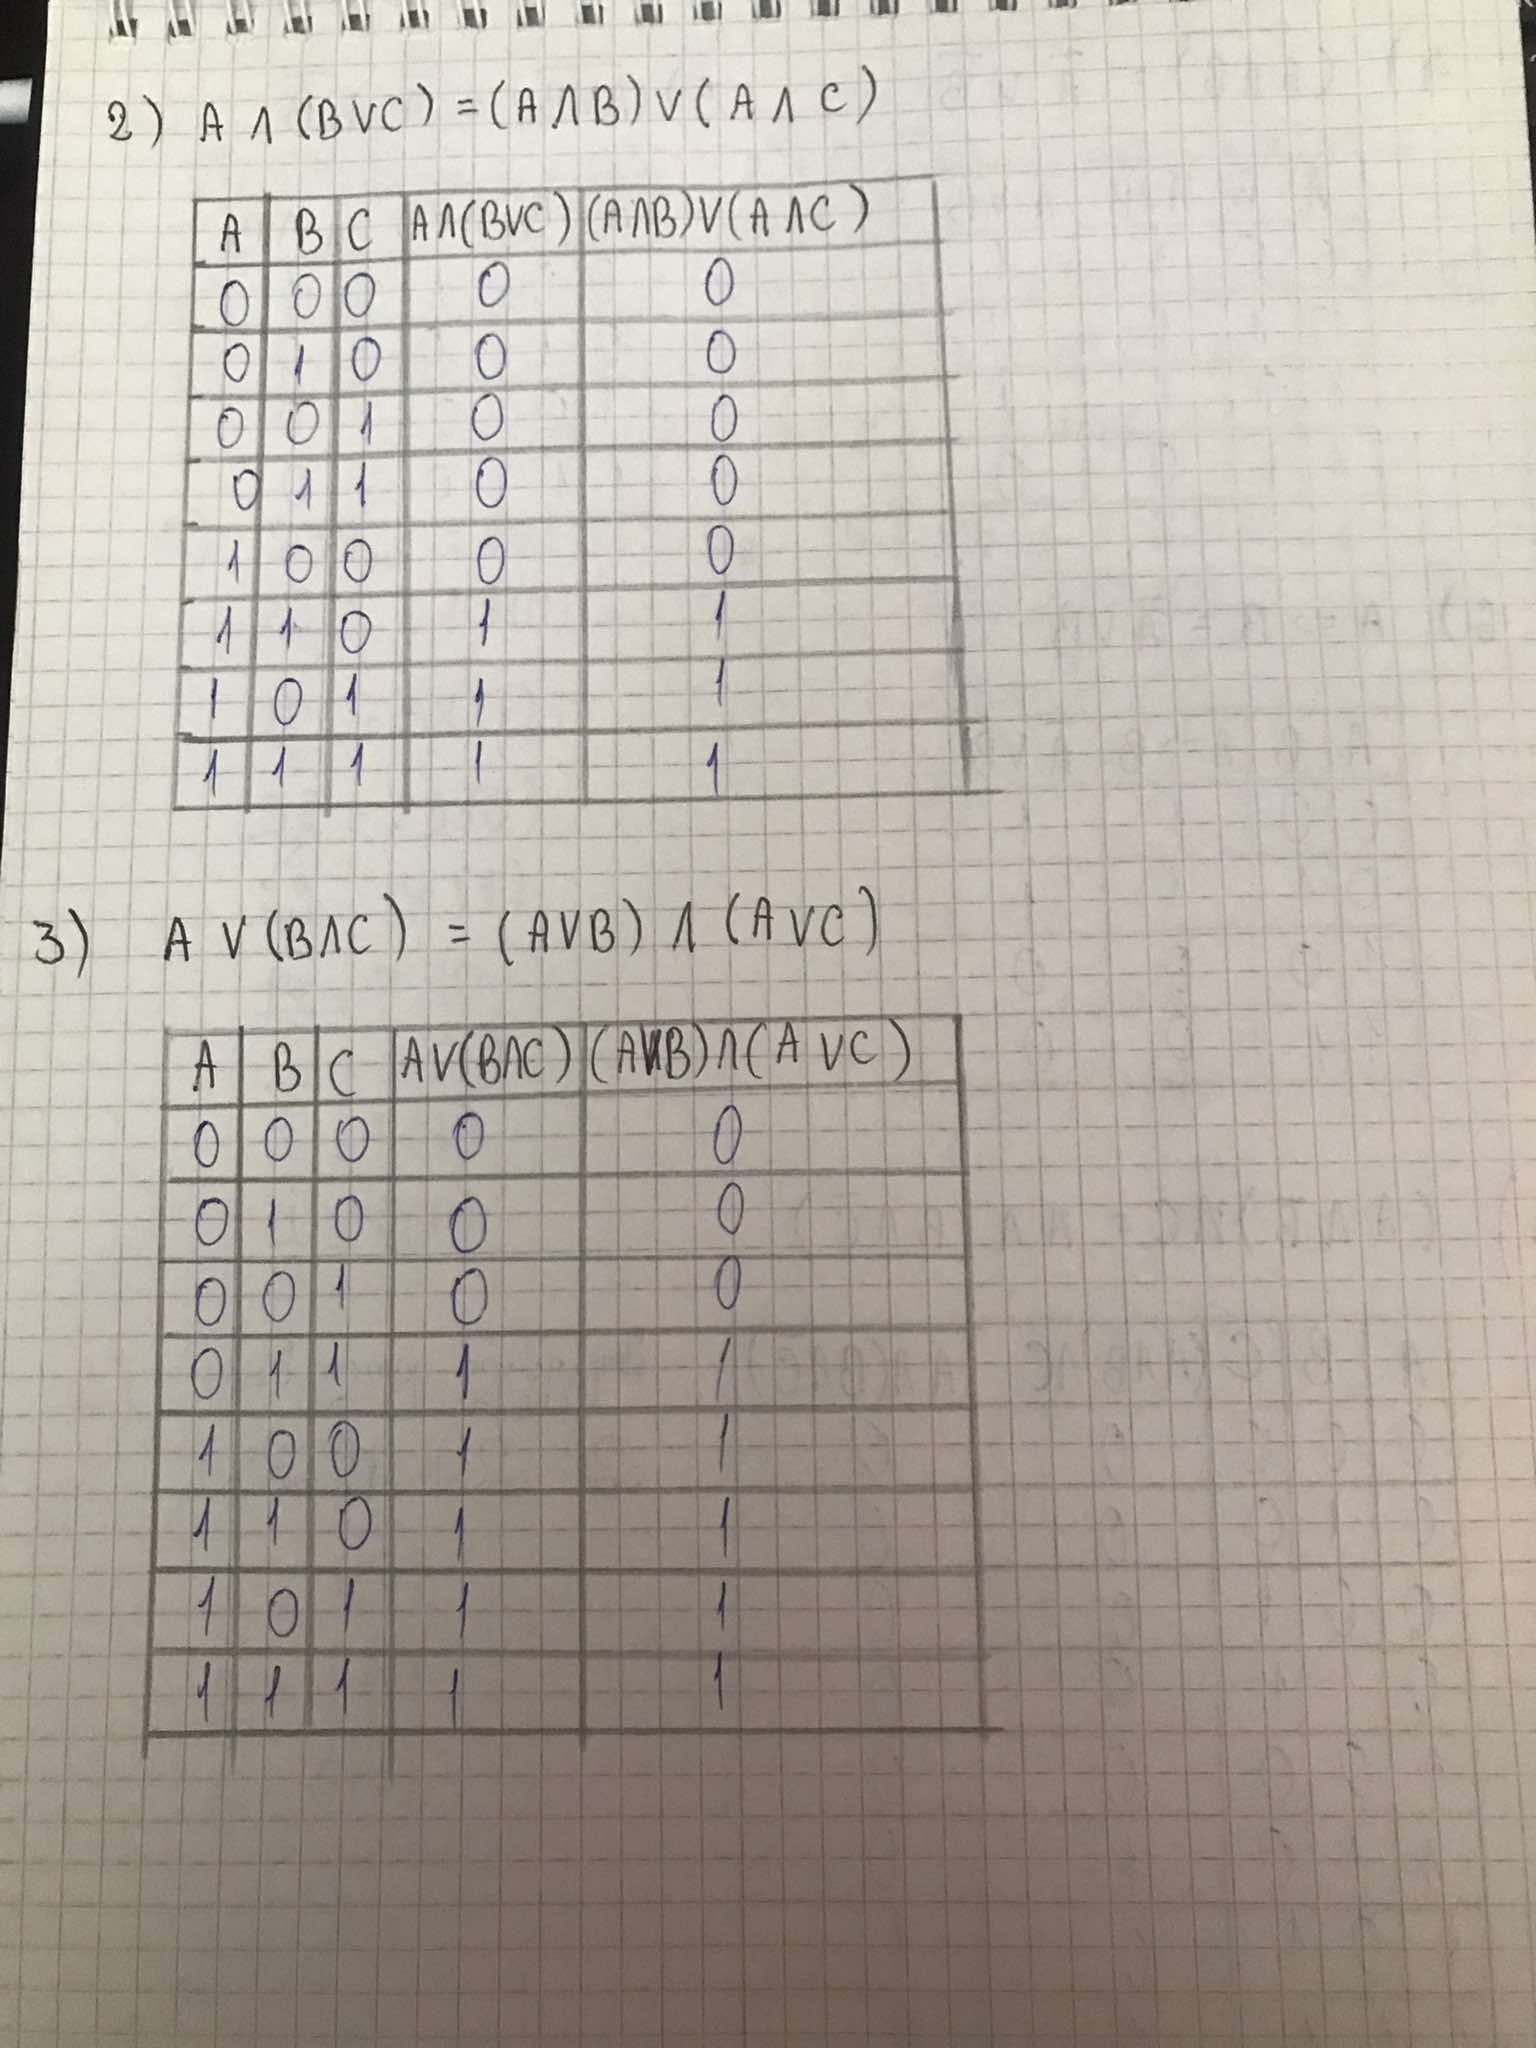 2) A ∧ (B∨C) = (A∧B) ∨ (A ∧ C)
A B C A∧(B∨C) (A∧B)∨(A∧C)
0 0 0 0 0
0 1 0 0 0
0 0 1 0 0
0 1 1 0 0
1 0 0 0 0
1 1 0 1 1
1 0 1 1 1
1 1 1 1 1
3) A ∨ (B∧C) = (A∨B) ∧ (A∨C)
A B C A∨(B∧C) (A∨B)∧(A∨C)
0 0 0 0 0
0 1 0 0 0
0 0 1 0 0
0 1 1 1 1
1 0 0 1 1
1 1 0 1 1
1 0 1 1 1
1 1 1 1 1